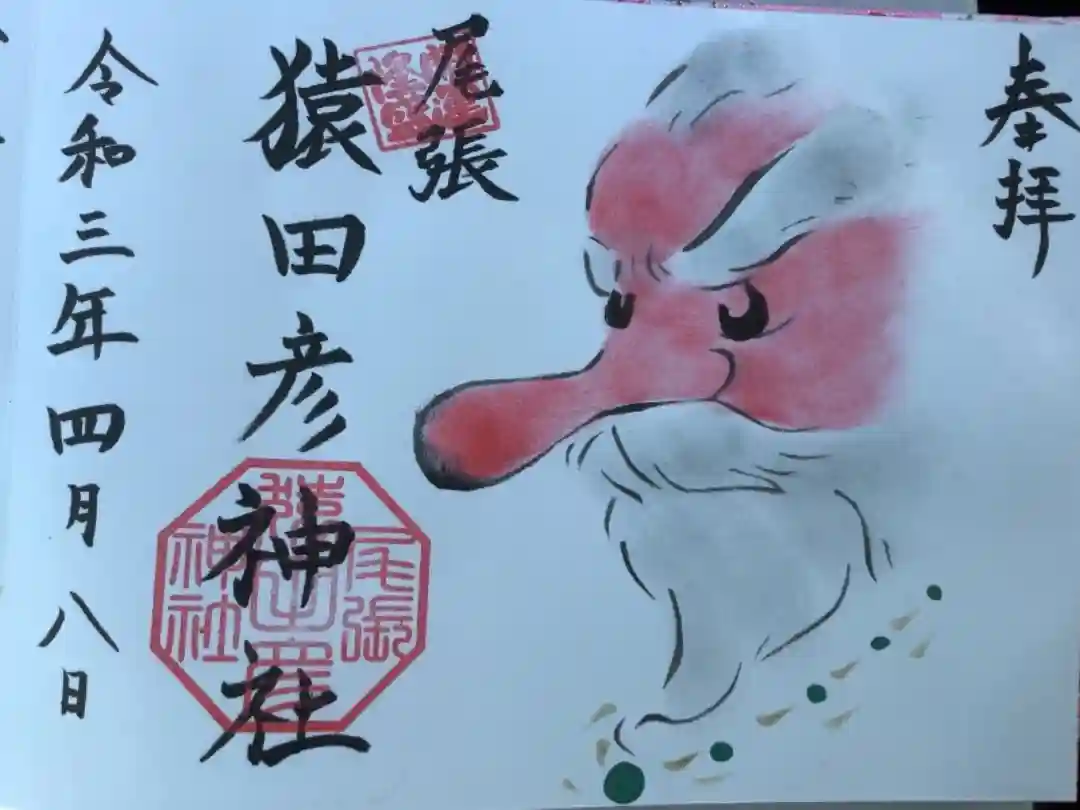 奉拝
尾張
猿田彦神社
令和三年四月八日
尾張
猿田彦
神社